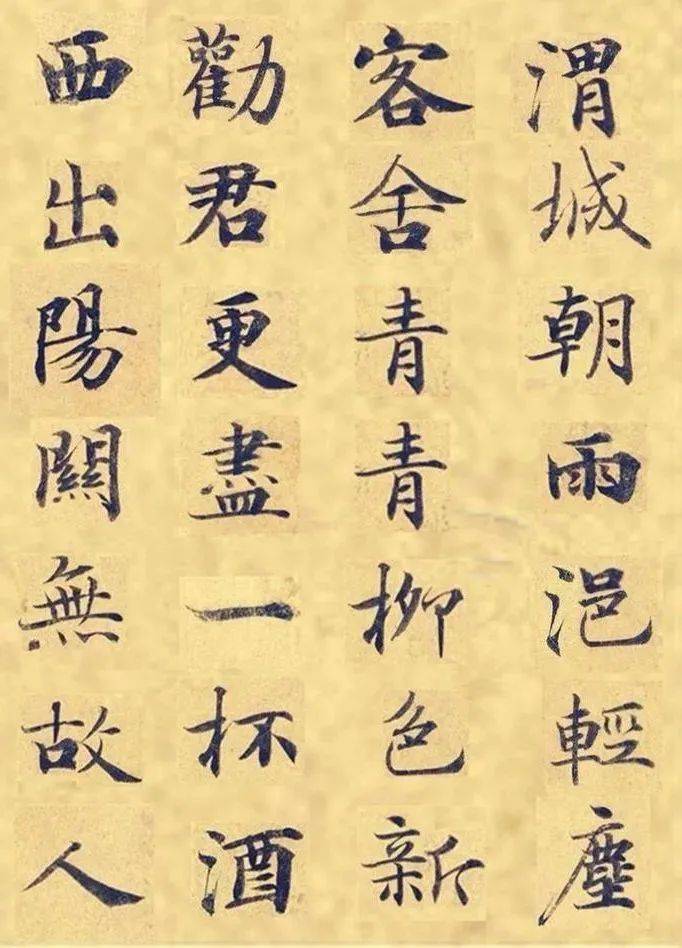 渭城朝雨浥輕塵
客舍青青柳色新
勸君更盡一杯酒
西出陽關無故人